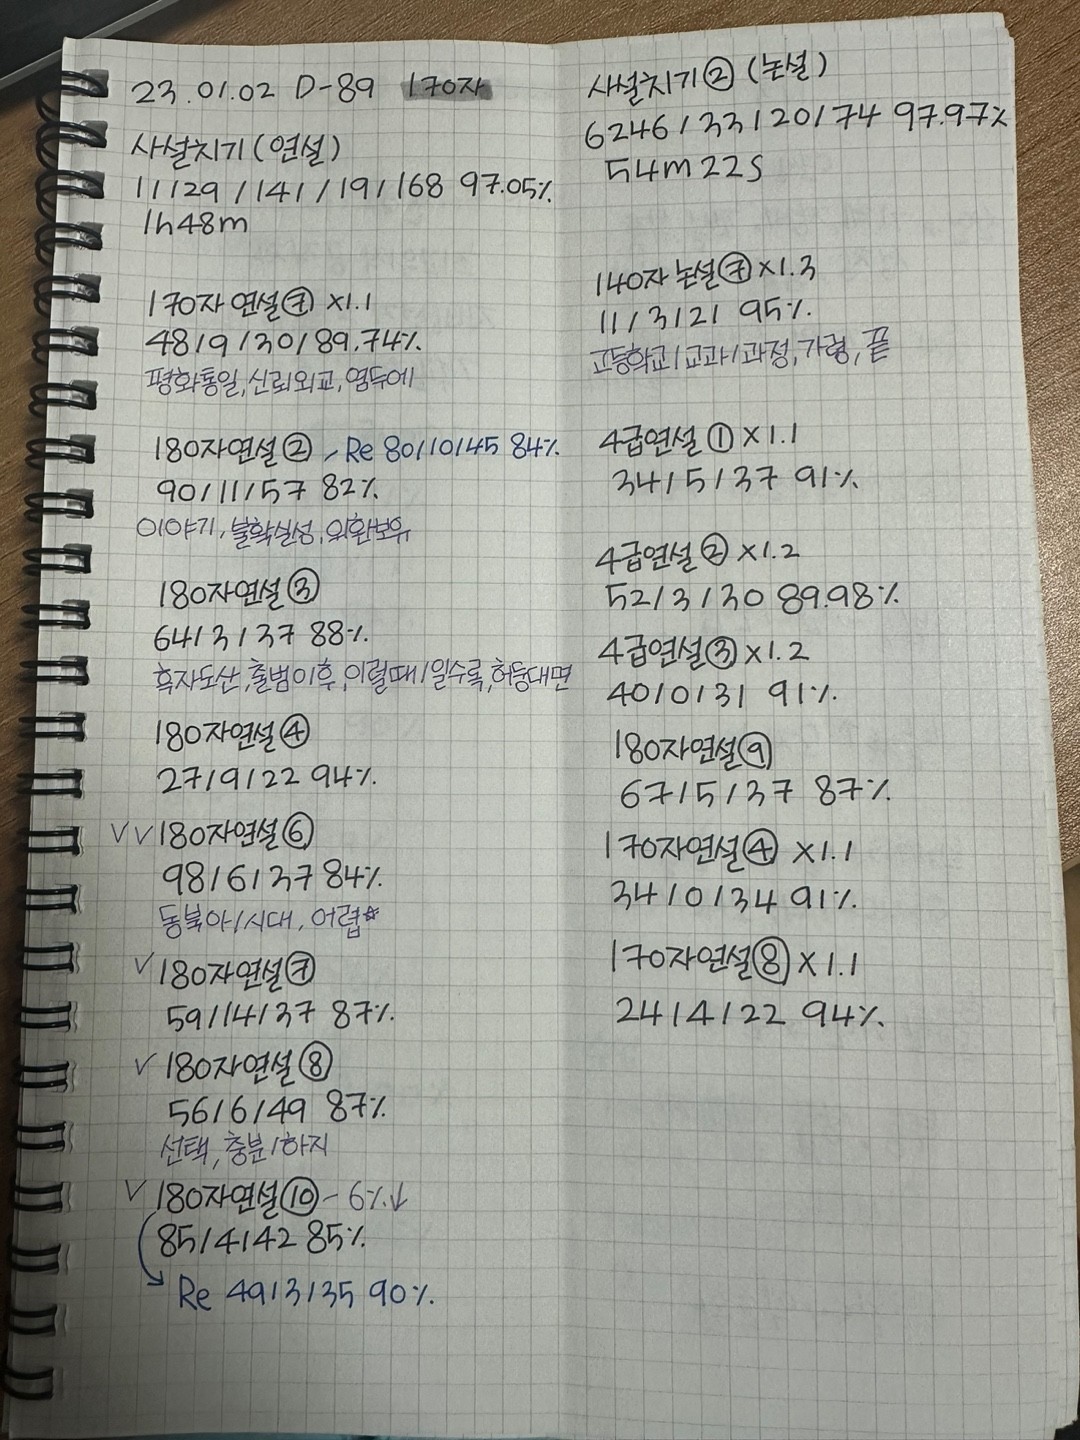 23.01.02 D-89 170자
사설치기(연설)
11129/141/19/168 97.05%
1h48m
170자 연설⑦ ×1.1
48/9/30/89.74%
평화통일, 신뢰외교, 염두에
180자연설② - Re 80/10/45 84%
90/11/57 82%
이야기, 불확실성, 외환보유
180자연설③
64/3/37 88%
흑자도산, 출범이후, 이럴때/일수록, 허둥대면
180자연설④
27/9/22 94%
✓✓180자연설⑥
98/6/37 84%
동북아/시대, 어렵☆
✓180자연설⑦
59/14/37 87%
✓180자연설⑧
56/6/49 87%
선택, 충분/하지
✓180자연설⑩ - 6%↓
85/4/42 85%
Re 49/3/35 90%
사설치기②(논설)
6246/33/20/74 97.97%
54m22s
140자 논설⑦ ×1.3
11/3/21 95%
고등학교/교과/과정, 가령, 끝
4급연설① ×1.1
34/5/37 91%
4급연설② ×1.2
52/3/30 89.98%
4급연설③ ×1.2
40/0/31 91%
180자연설⑨
67/5/37 87%
170자연설④ ×1.1
34/0/34 91%
170자연설⑧ ×1.1
24/4/22 94%